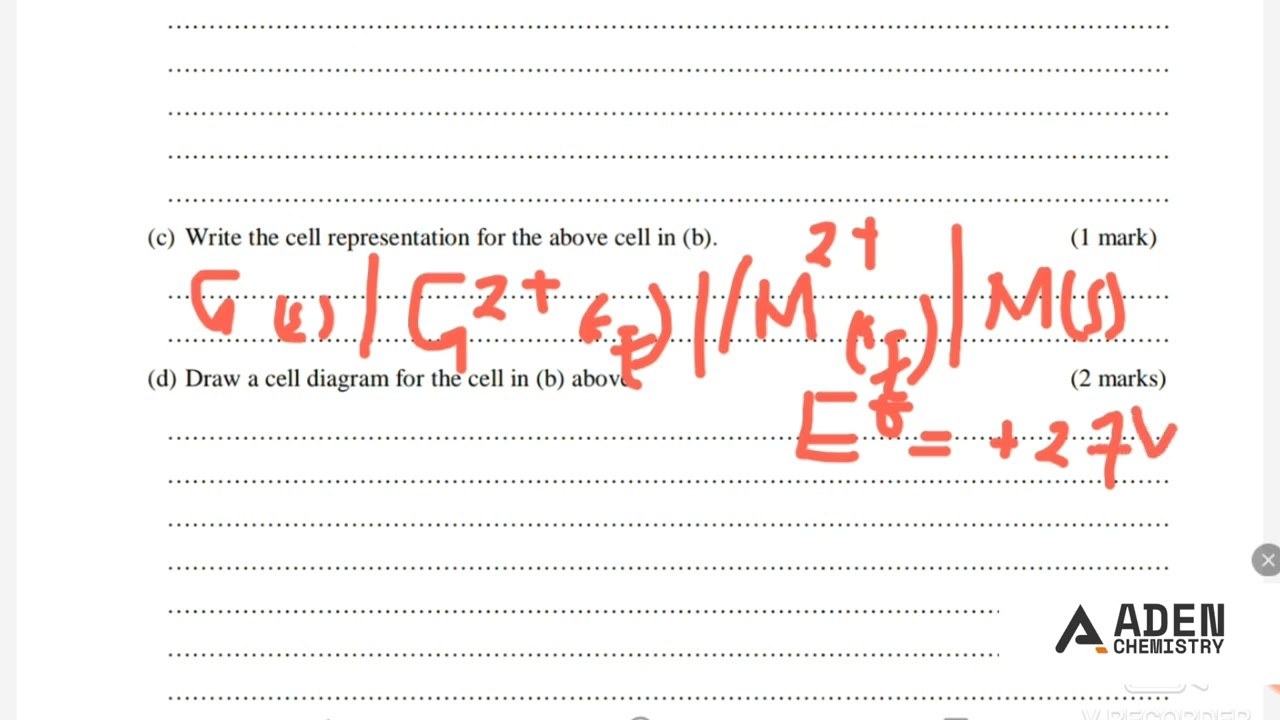 (c) Write the cell representation for the above cell in (b). (1 mark)
G (s) | G2+ (aq) || M2+ (aq) | M(s)
(d) Draw a cell diagram for the cell in (b) above (2 marks)
Eθ = +27V
ADEN
CHEMISTRY
V RECORDER